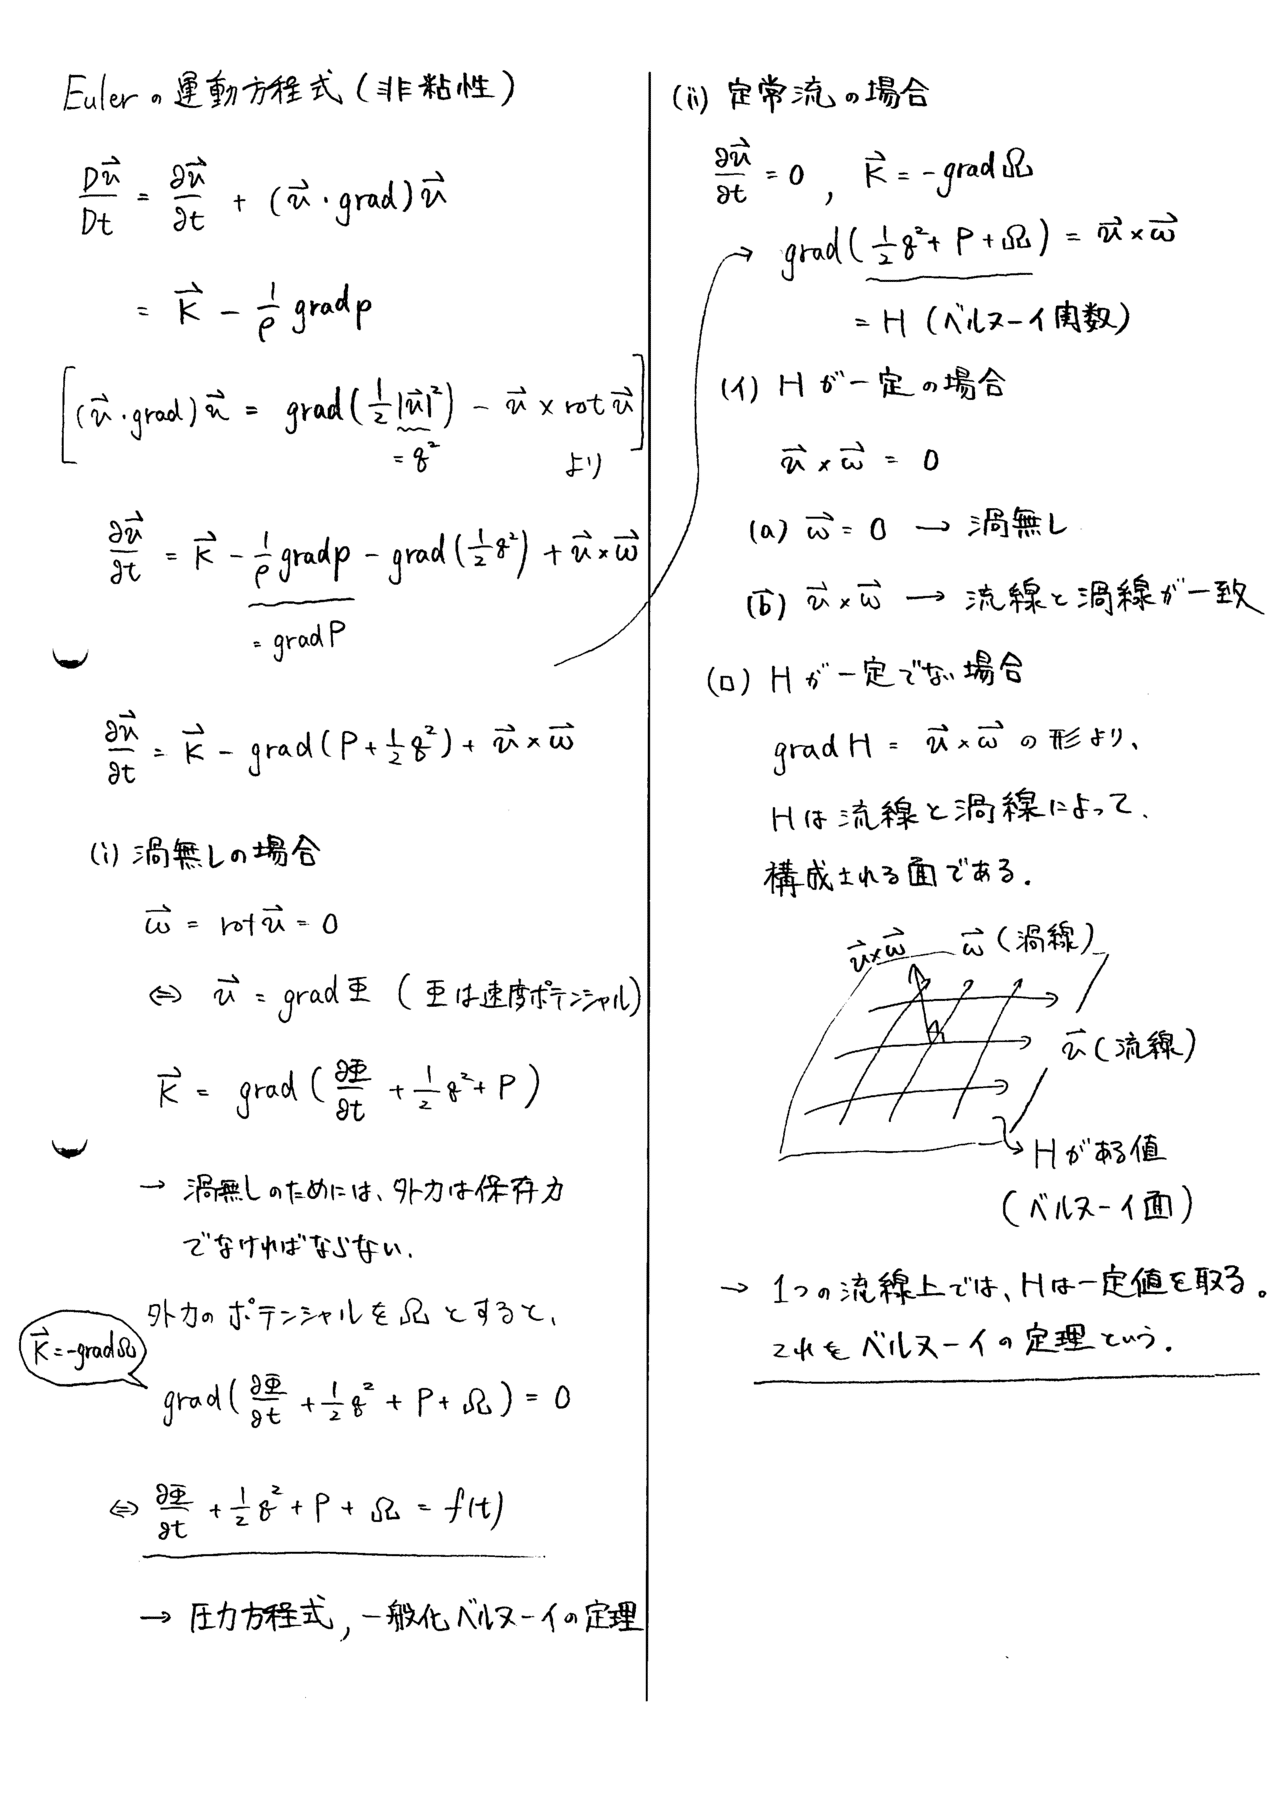 Eulerの運動方程式(非粘性)
Du⃗/Dt = ∂u⃗/∂t + (u⃗・grad)u⃗
= K⃗ − 1/ρ grad p
[(u⃗・grad)u⃗ = grad(1/2|u⃗|²) − u⃗ × rot u⃗]
= q² より
∂u⃗/∂t = K⃗ − 1/ρ grad p − grad(1/2 q²) + u⃗×ω⃗
= grad P
∂u⃗/∂t = K⃗ − grad(P + 1/2 q²) + u⃗×ω⃗
(i) 渦無しの場合
ω⃗ = rot u⃗ = 0
⇔ u⃗ = grad Φ (Φは速度ポテンシャル)
K⃗ = grad(∂Φ/∂t + 1/2 q² + P)
→ 渦無しのためには、外力は保存力
でなければならない.
外力のポテンシャルをΩとすると、
K⃗=-gradΩ
grad(∂Φ/∂t + 1/2 q² + P + Ω) = 0
⇔ ∂Φ/∂t + 1/2 q² + P + Ω = f(t)
→ 圧力方程式, 一般化ベルヌーイの定理
(ii) 定常流の場合
∂u⃗/∂t = 0 , K⃗ = -grad Ω
→ grad(1/2 q² + P + Ω) = u⃗×ω⃗
= H (ベルヌーイ関数)
(イ) Hが一定の場合
u⃗ × ω⃗ = 0
(a) ω⃗ = 0 → 渦無し
(b) u⃗×ω⃗ → 流線と渦線が一致
(ロ) Hが一定でない場合
grad H = u⃗×ω⃗ の形より、
Hは流線と渦線によって、
構成される面である.
u⃗×ω⃗ ω⃗ (渦線)
u⃗ (流線)
Hがある値
(ベルヌーイ面)
→ 1つの流線上では、Hは一定値を取る。
これをベルヌーイの定理という.